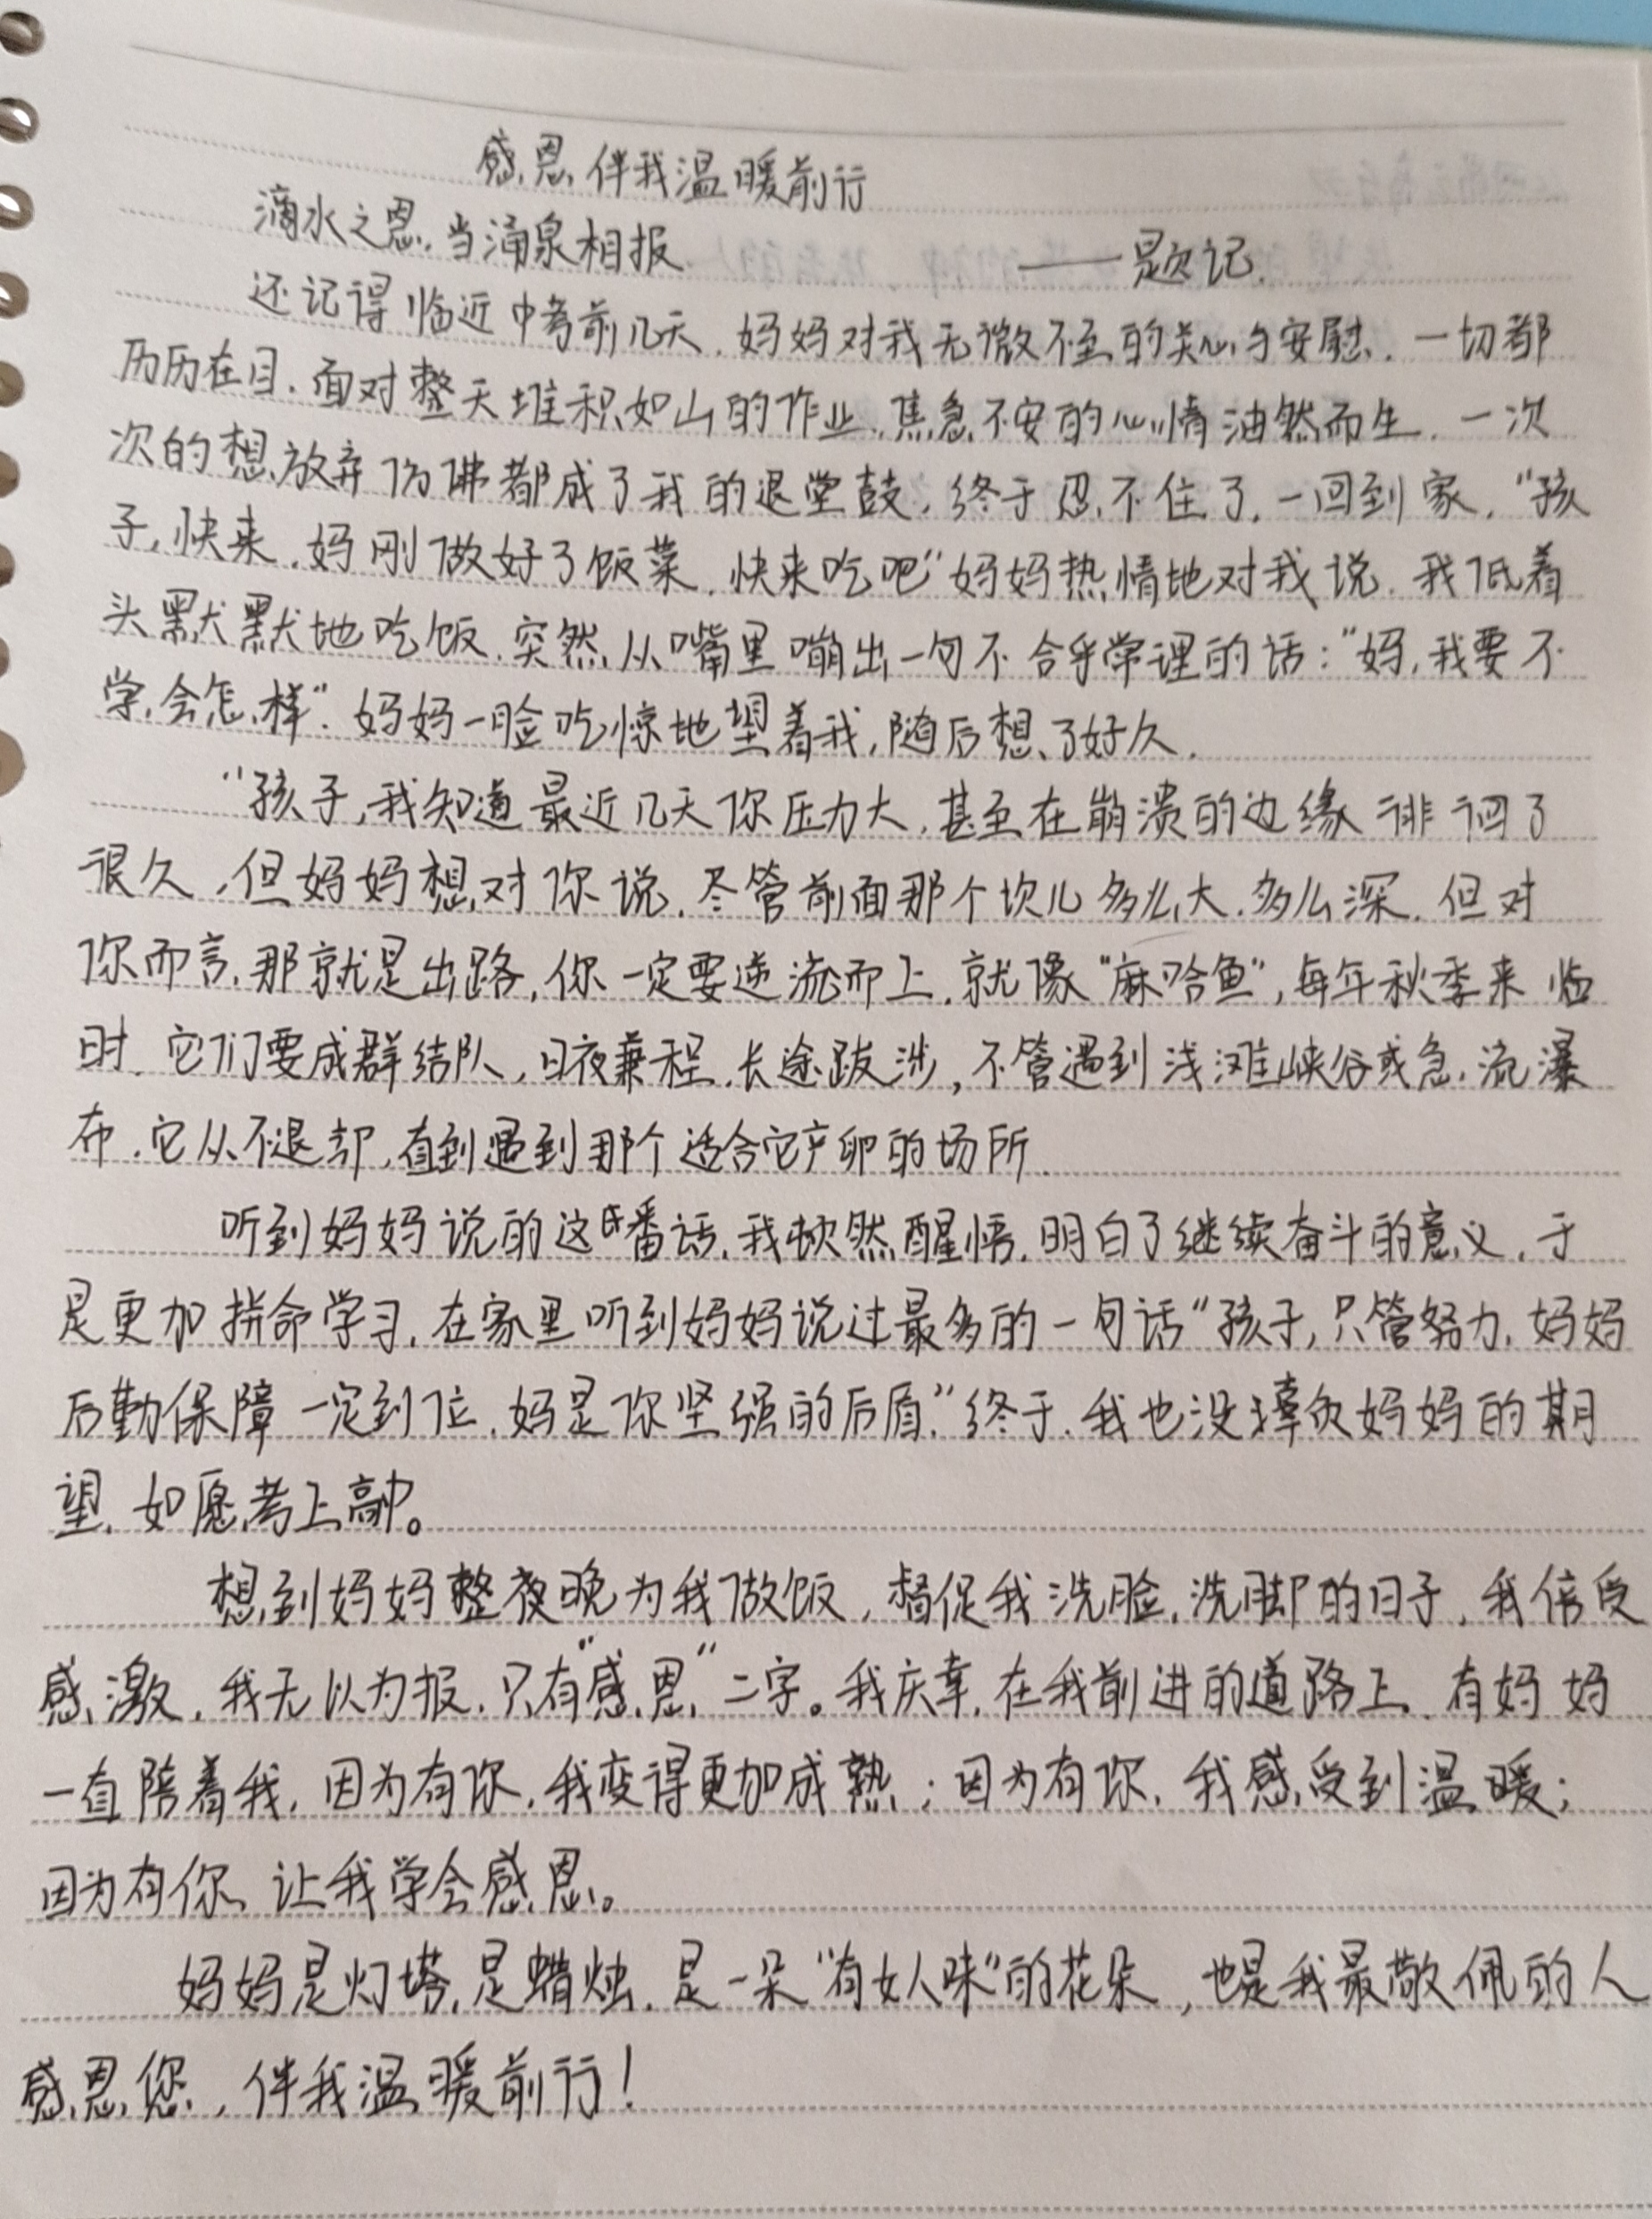 感恩,伴我温暖前行
滴水之恩,当涌泉相报 ——题记.
还记得临近中考前几天,妈妈对我无微不至的关心与安慰,一切都
历历在目.面对整天堆积如山的作业,焦急不安的心情油然而生,一次
次的想放弃仿佛都成了我的退堂鼓,终于忍不住了,一回到家,“孩
子,快来,妈刚做好了饭菜,快来吃吧”妈妈热情地对我说.我低着
头默默地吃饭,突然从嘴里嘣出一句不合乎常理的话:“妈,我要不
学,会怎样”.妈妈一脸吃惊地望着我,随后想了好久.
“孩子,我知道最近几天你压力大,甚至在崩溃的边缘徘徊了
很久,但妈妈想对你说,尽管前面那个坎儿多么大,多么深,但对
你而言,那就是出路,你一定要逆流而上,就像“麻哈鱼”,每年秋季来临
时,它们要成群结队,日夜兼程,长途跋涉,不管遇到浅滩峡谷或急流瀑
布,它从不退却,直到遇到那个适合它产卵的场所.
听到妈妈说的这番话,我顿然醒悟,明白了继续奋斗的意义,于
是更加拼命学习,在家里听到妈妈说过最多的一句话“孩子,只管努力,妈妈
后勤保障一定到位,妈是你坚强的后盾.”终于,我也没辜负妈妈的期
望,如愿考上高中。
想到妈妈整夜晚为我做饭,督促我洗脸,洗脚的日子,我倍受
感激,我无以为报,只有“感恩”二字。我庆幸,在我前进的道路上,有妈妈
一直陪着我,因为有你,我变得更加成熟;因为有你,我感受到温暖;
因为有你,让我学会感恩。
妈妈是灯塔,是蜡烛,是一朵“有女人味”的花朵,也是我最敬佩的人
感恩您,伴我温暖前行!